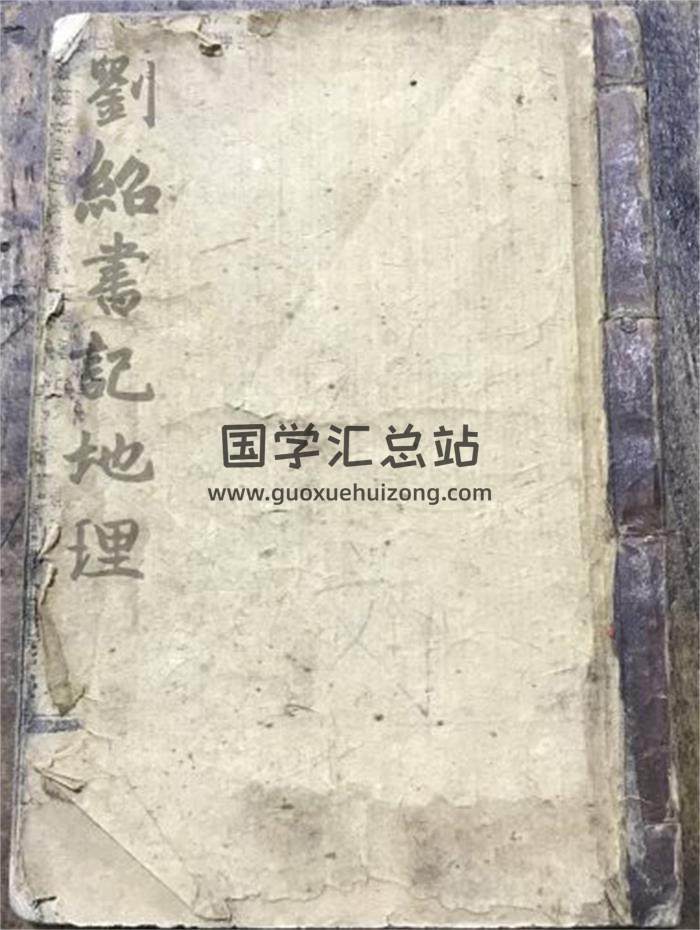 劉紹書記地理
国学汇总站
www.guoxuehuizong.com